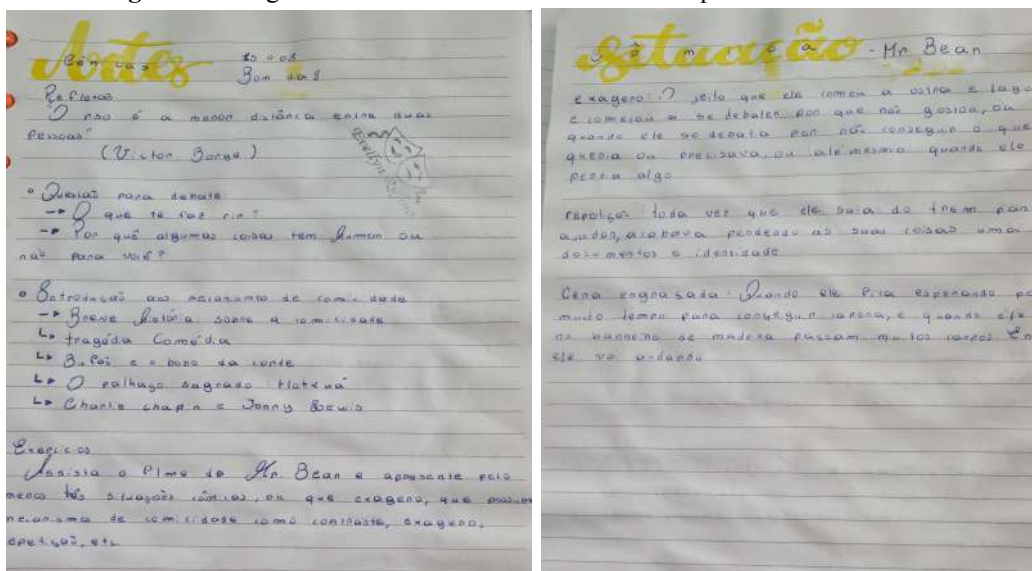 Artes
Cênicas
Bom dia!
Reflexão
"O riso é a menor distância entre duas
Pessoas"
(Victor Borge)
Evellyn
• Questão para debate
→ O que te faz rir?
→ Por quê algumas coisas tem humor ou
não para você?
• Introdução aos mecanismo de comicidade
→ Breve história sobre a comicidade
↳ tragédia Comédia
↳ Bufão e o bobo da corte
↳ O palhaço sagrado Hotxuá
↳ Charlie chaplin e Jerry Lewis
Exercícios
Assista o filme do Mr. Bean e apresente pelo
menos três situações cômicas, ou que exagero, que
mecanismo de comicidade como contraste, exagero,
repetição, etc
Situação - Mr Bean
cômica
exagero: O jeito que ele comeu a ostra e lago
e começou a se debater por que não gostou, ou
quando ele se debatia por não conseguir o que
queria ou precisava, ou até mesmo quando ele
perdia algo
repetição: toda vez que ele saia do trem para
ajudar, acabava perdendo as suas coisas uma
documentos e identidade
Cena engraçada: Quando ele fica esperando por
muito tempo para conseguir carona, e quando ele
no barreiro de madeira passam muitos carros
ele vai andando